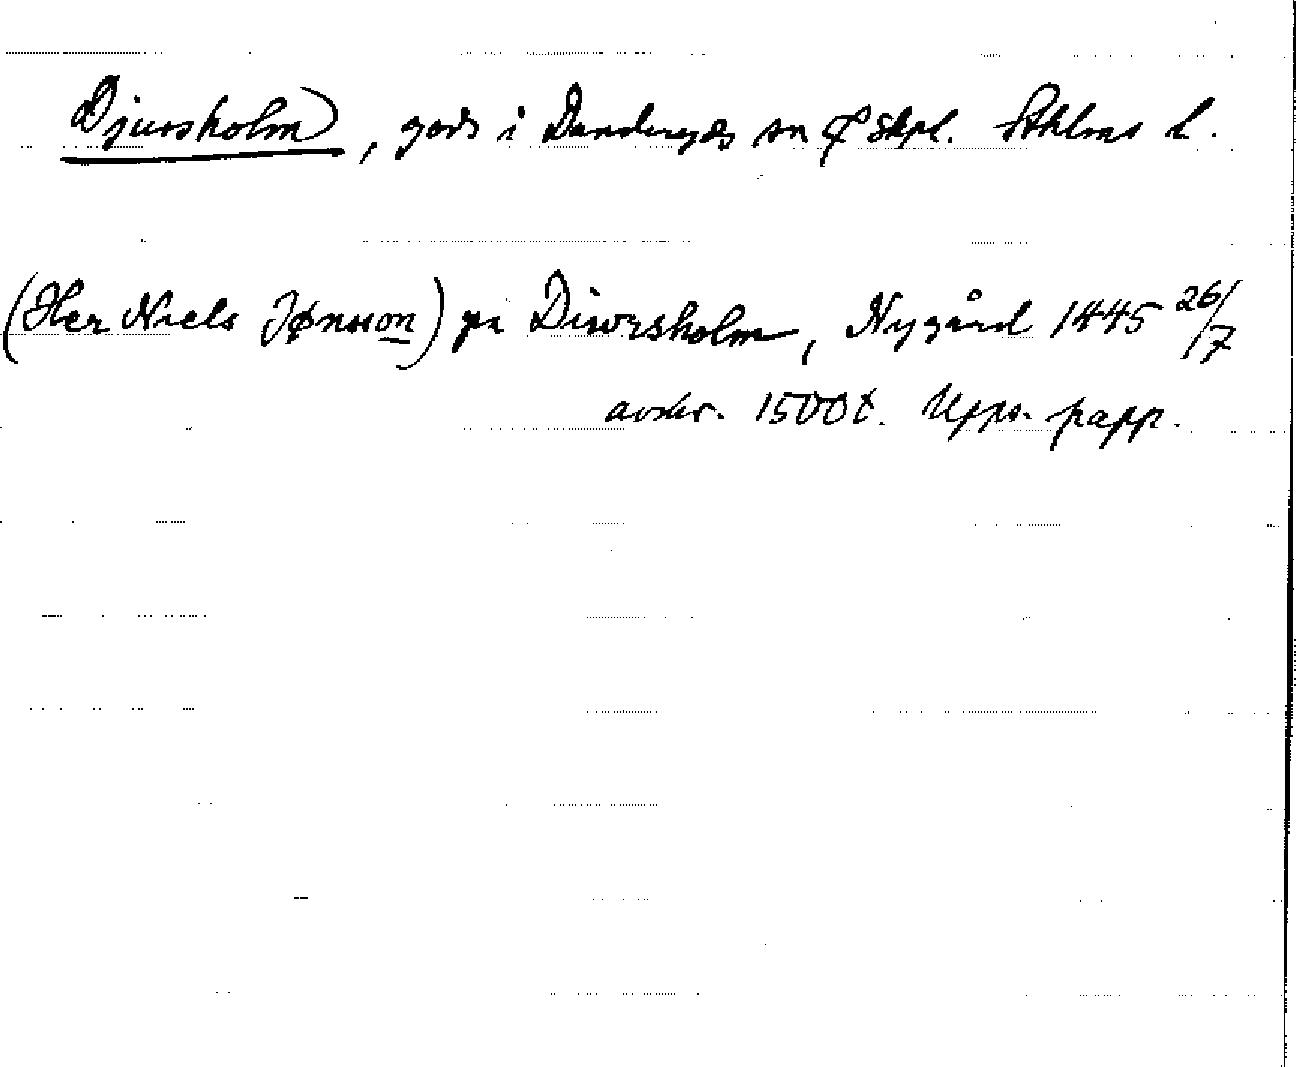 Djursholm, gods i Danderyds sn o skpl. Sthlms l.
(Her Niels Jønsson) pa Diwrsholm, Nygård 1445 26/7
avskr. 1500t. Upps. papp.